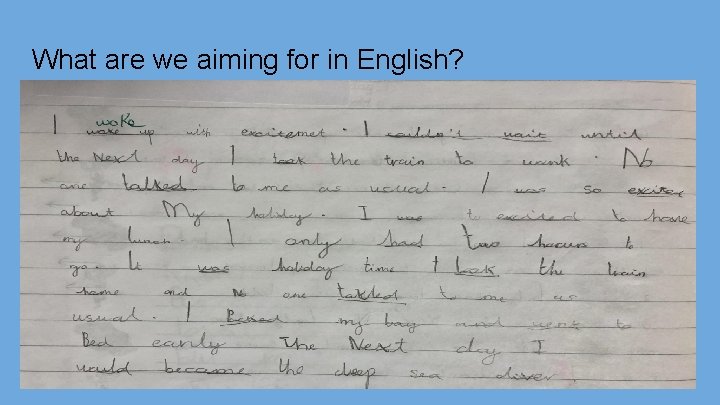 What are we aiming for in English?
woke
I wake up with excitemet. I couldn't wait until
the Next day I took the train to wank. No
one talked to me as usual. I was so excited
about My holiday. I was to excited to have
my lunch. I only had two hours to
go. It was holiday time I took the train
home and No one talked to me as
usual. I Backed my bag and went to
Bed early The Next day I
would became the deep sea diver!